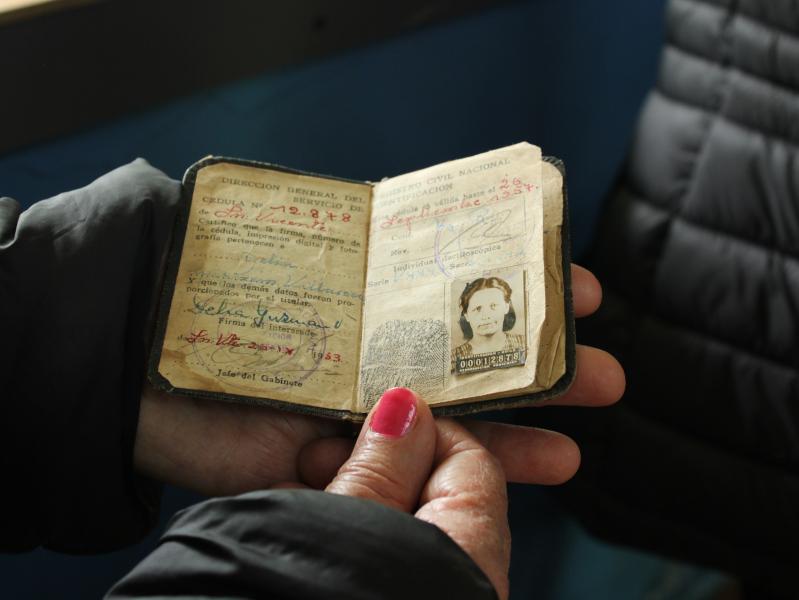 DIRECCION GENERAL DEL
SERVICIO DE
CEDULA Nº 12.878
de Sn. Vicente
Certifico que la firma, número de
la cédula, impresión digital y foto-
grafía pertenecen a
Delia
Y que los demás datos fueron pro-
porcionados por el titular.
Delia Guzman V
Firma del interesado
de Sn. Vte 26-IX 1953
Jefe del Gabinete
REGISTRO CIVIL NACIONAL
IDENTIFICACION
cédula es válida hasta el 26
Septiembre 1957.
Individual dactiloscópica
Serie Secc.
00012878